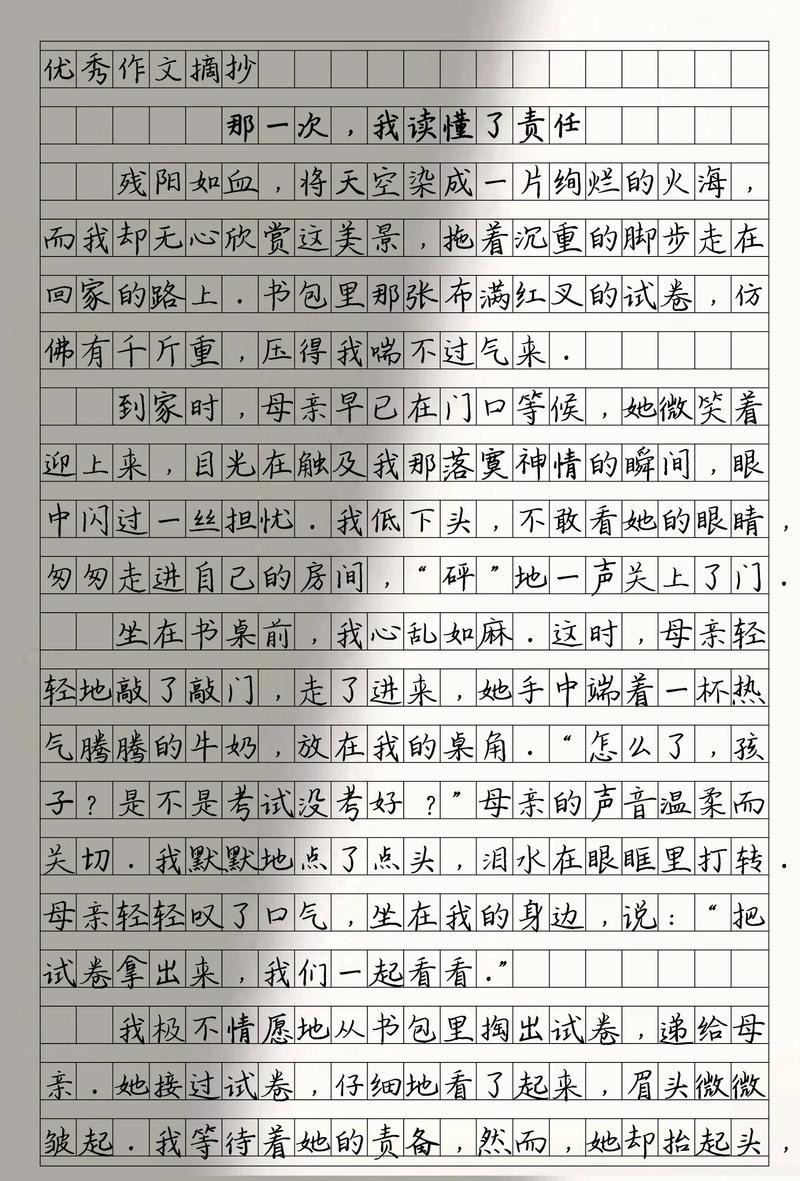 优秀作文摘抄
那一次，我读懂了责任
残阳如血，将天空染成一片绚烂的火海，
而我却无心欣赏这美景，拖着沉重的脚步走在
回家的路上．书包里那张布满红叉的试卷，仿
佛有千斤重，压得我喘不过气来．
到家时，母亲早已在门口等候，她微笑着
迎上来，目光在触及我那落寞神情的瞬间，眼
中闪过一丝担忧．我低下头，不敢看她的眼睛，
匆匆走进自己的房间，“砰”地一声关上了门．
坐在书桌前，我心乱如麻．这时，母亲轻
轻地敲了敲门，走了进来，她手中端着一杯热
气腾腾的牛奶，放在我的桌角．“怎么了，孩
子？是不是考试没考好？”母亲的声音温柔而
关切．我默默地点了点头，泪水在眼眶里打转．
母亲轻轻叹了口气，坐在我的身边，说：“把
试卷拿出来，我们一起看看．”
我极不情愿地从书包里掏出试卷，递给母
亲．她接过试卷，仔细地看了起来，眉头微微
皱起．我等待着她的责备，然而，她却抬起头，